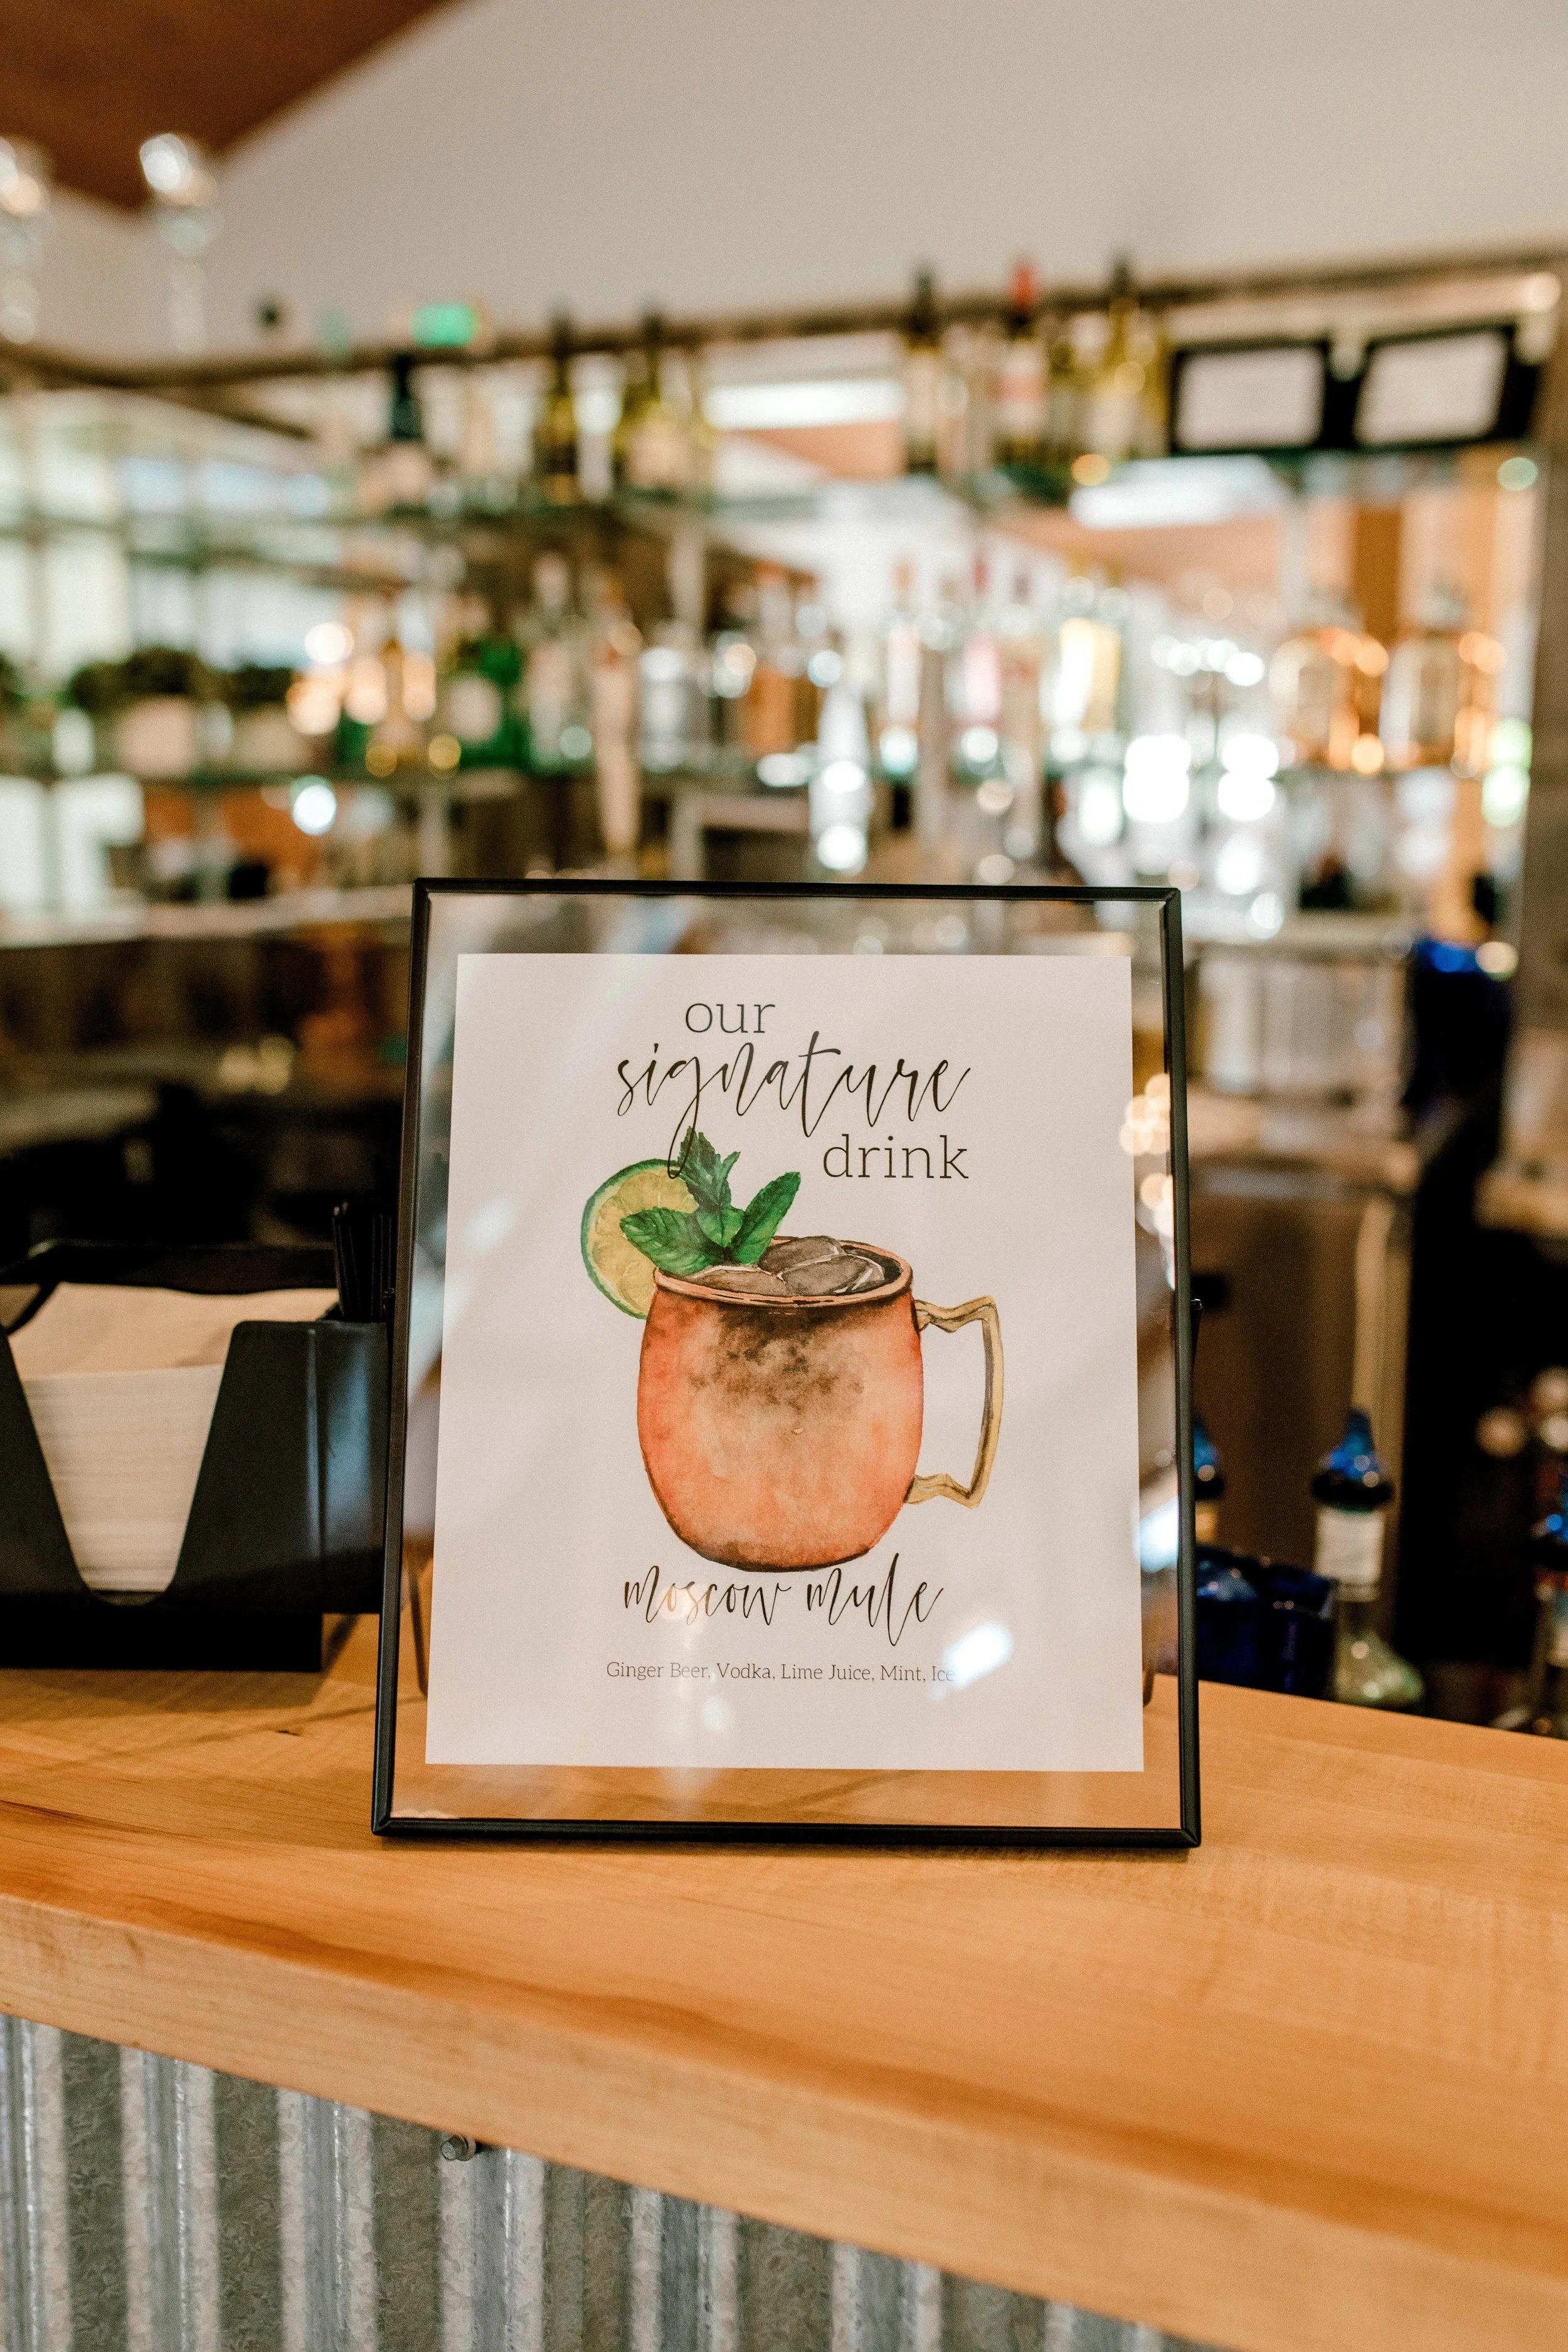 our
signature
drink
moscow mule
Ginger Beer, Vodka, Lime Juice, Mint, Ice